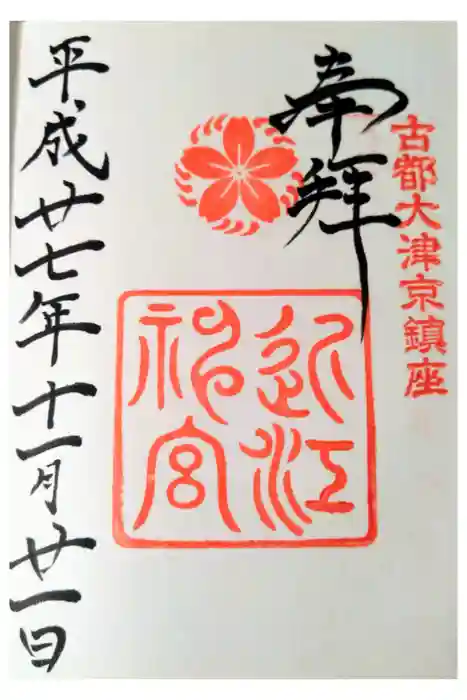 古都大津京鎮座
奉拝
近江
神宮
平成廿七年十一月廿一日